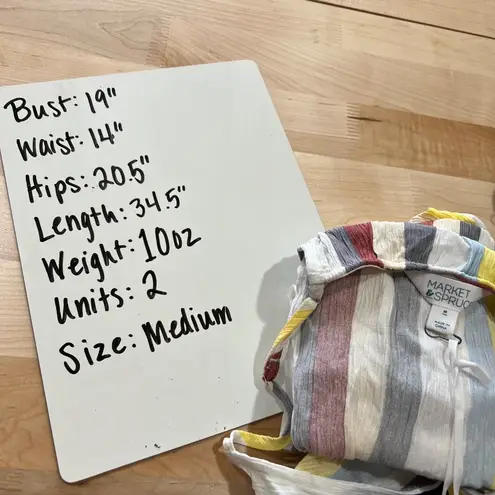 Bust: 19"
Waist: 14"
Hips: 20.5"
Length: 34.5"
Weight: 10oz
Units: 2
Size: Medium
MARKET
& SPRUCE
M
MADE IN
CHINA